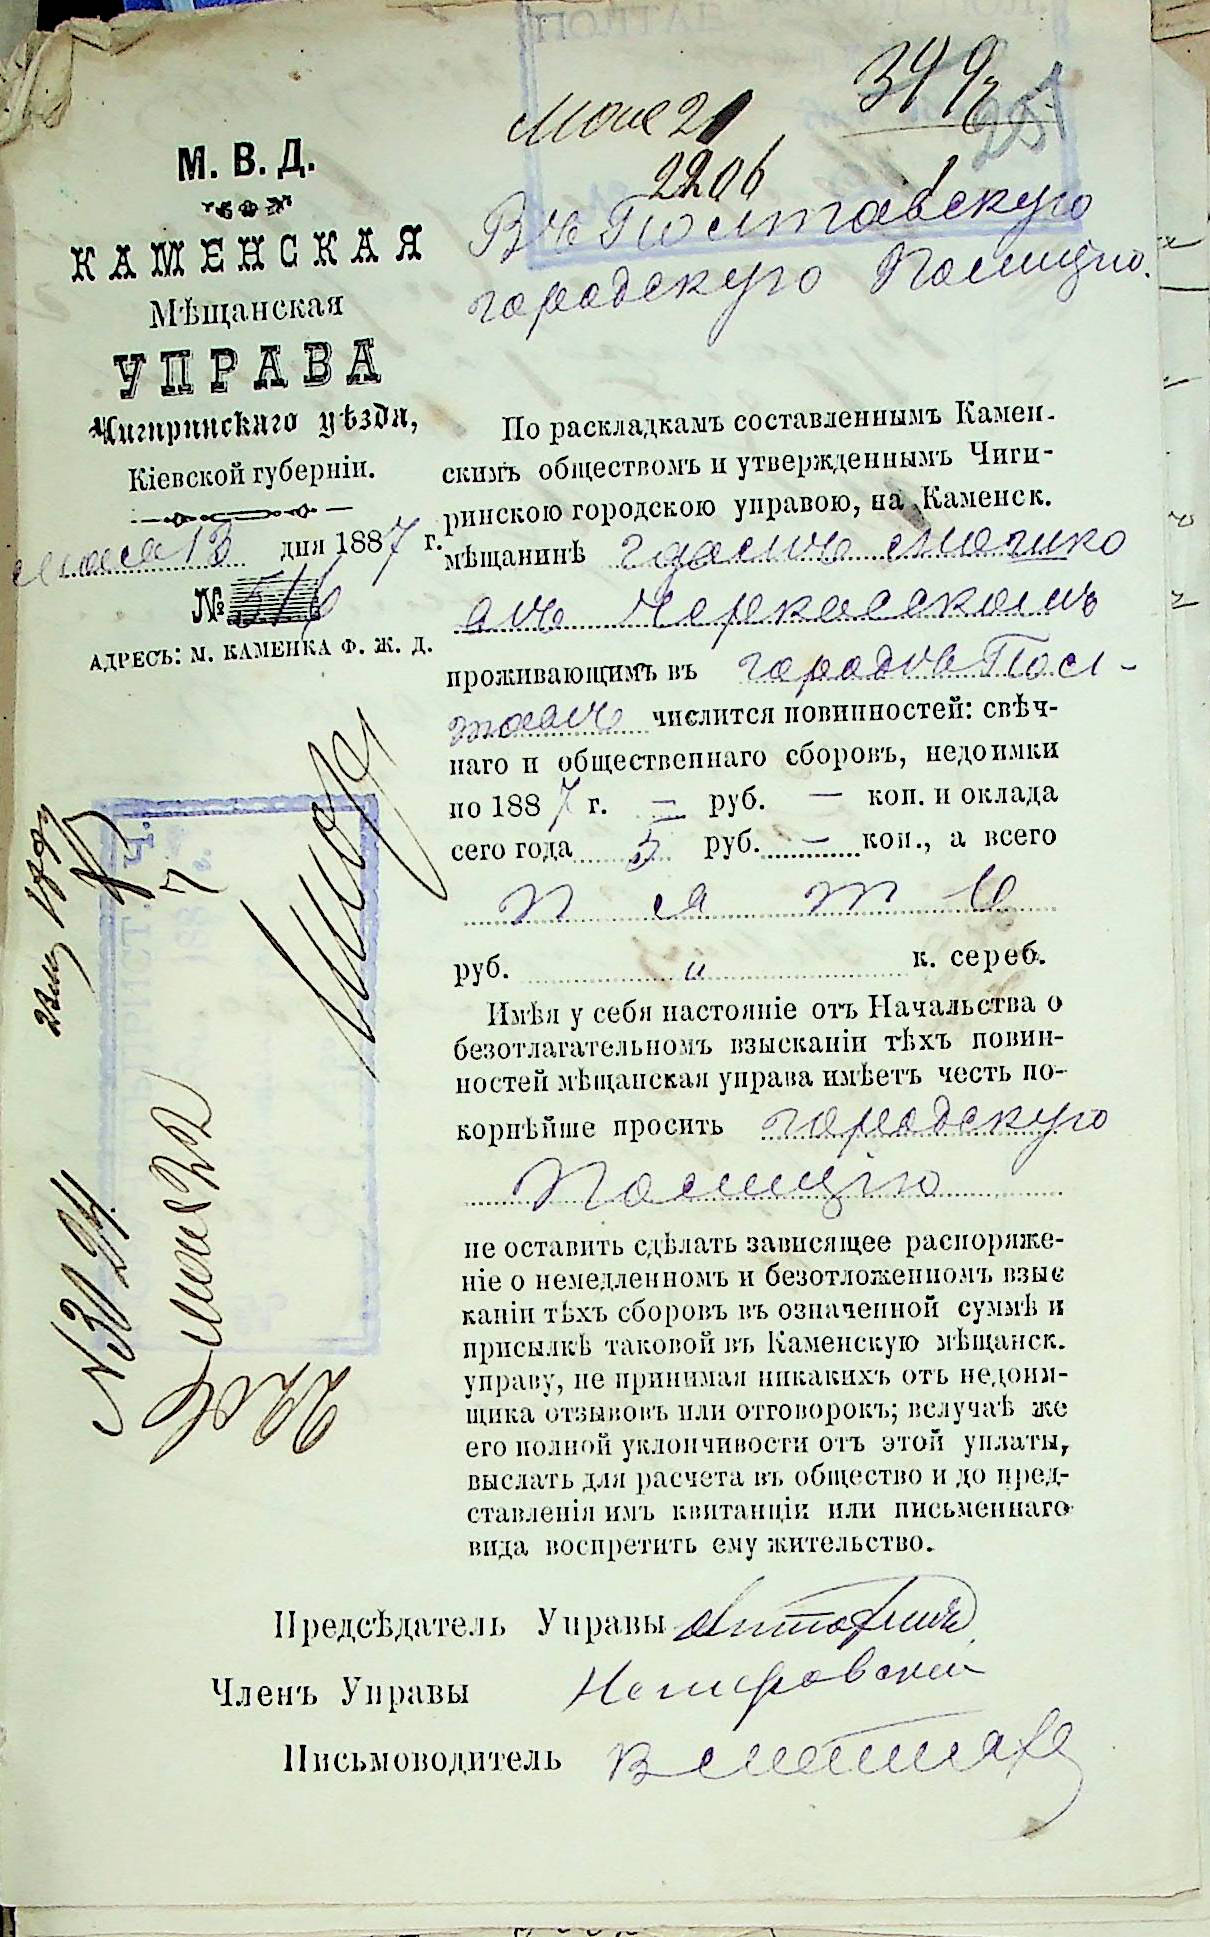 М. В. Д.
КАМЕНСКАЯ
Мѣщанская
УПРАВА
Чигиринскаго уѣзда,
Кіевской губерніи.
мая 13 дня 1887 г.
№ 516
АДРЕСЪ: М. КАМЕНКА Ф. Ж. Д.
Мая 21
2206
Въ Полтавскую
городскую Полицію.
По раскладкамъ составленнымъ Камен-
скимъ обществомъ и утвержденнымъ Чиги-
ринскою городскою управою, на Каменск.
мѣщанинѣ
Черкасскомъ
проживающимъ въ городѣ Пол-
тавѣ числится повинностей: свѣч-
наго и общественнаго сборовъ, недоимки
по 1887 г. — руб. — коп. и оклада
сего года 5 руб. — коп., а всего
пять
руб. " к. сереб.
Имѣя у себя настояніе отъ Начальства о
безотлагательномъ взысканіи тѣхъ повин-
ностей мѣщанская управа имѣетъ честь по-
корнѣйше просить городскую
Полицію
не оставить сдѣлать зависящее распоряже-
ніе о немедленномъ и безотложенномъ взыс
каніи тѣхъ сборовъ въ означенной суммѣ и
присылкѣ таковой въ Каменскую мѣщанск.
управу, не принимая никакихъ отъ недоим-
щика отзывовъ или отговорокъ; вслучаѣ же
его полной уклончивости отъ этой уплаты,
выслать для расчета въ общество и до пред-
ставленія имъ квитанціи или письменнаго
вида воспретить ему жительство.
№ 3024
мая 22
Предсѣдатель Управы
Членъ Управы
Письмоводитель